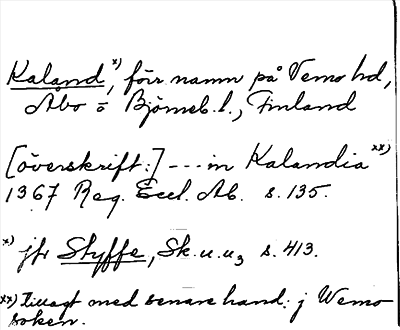 Kaland x), förr namn på Vemo hd,
Åbo o Björneb. l., Finland
[överskrift:] --- in Kalandia xx)
1367 Reg. Eccl. Ab. s. 135.
x) jfr Styffe, Sk. u. u3 s. 413.
xx) Tillagt med senare hand: j Wemo
soken.